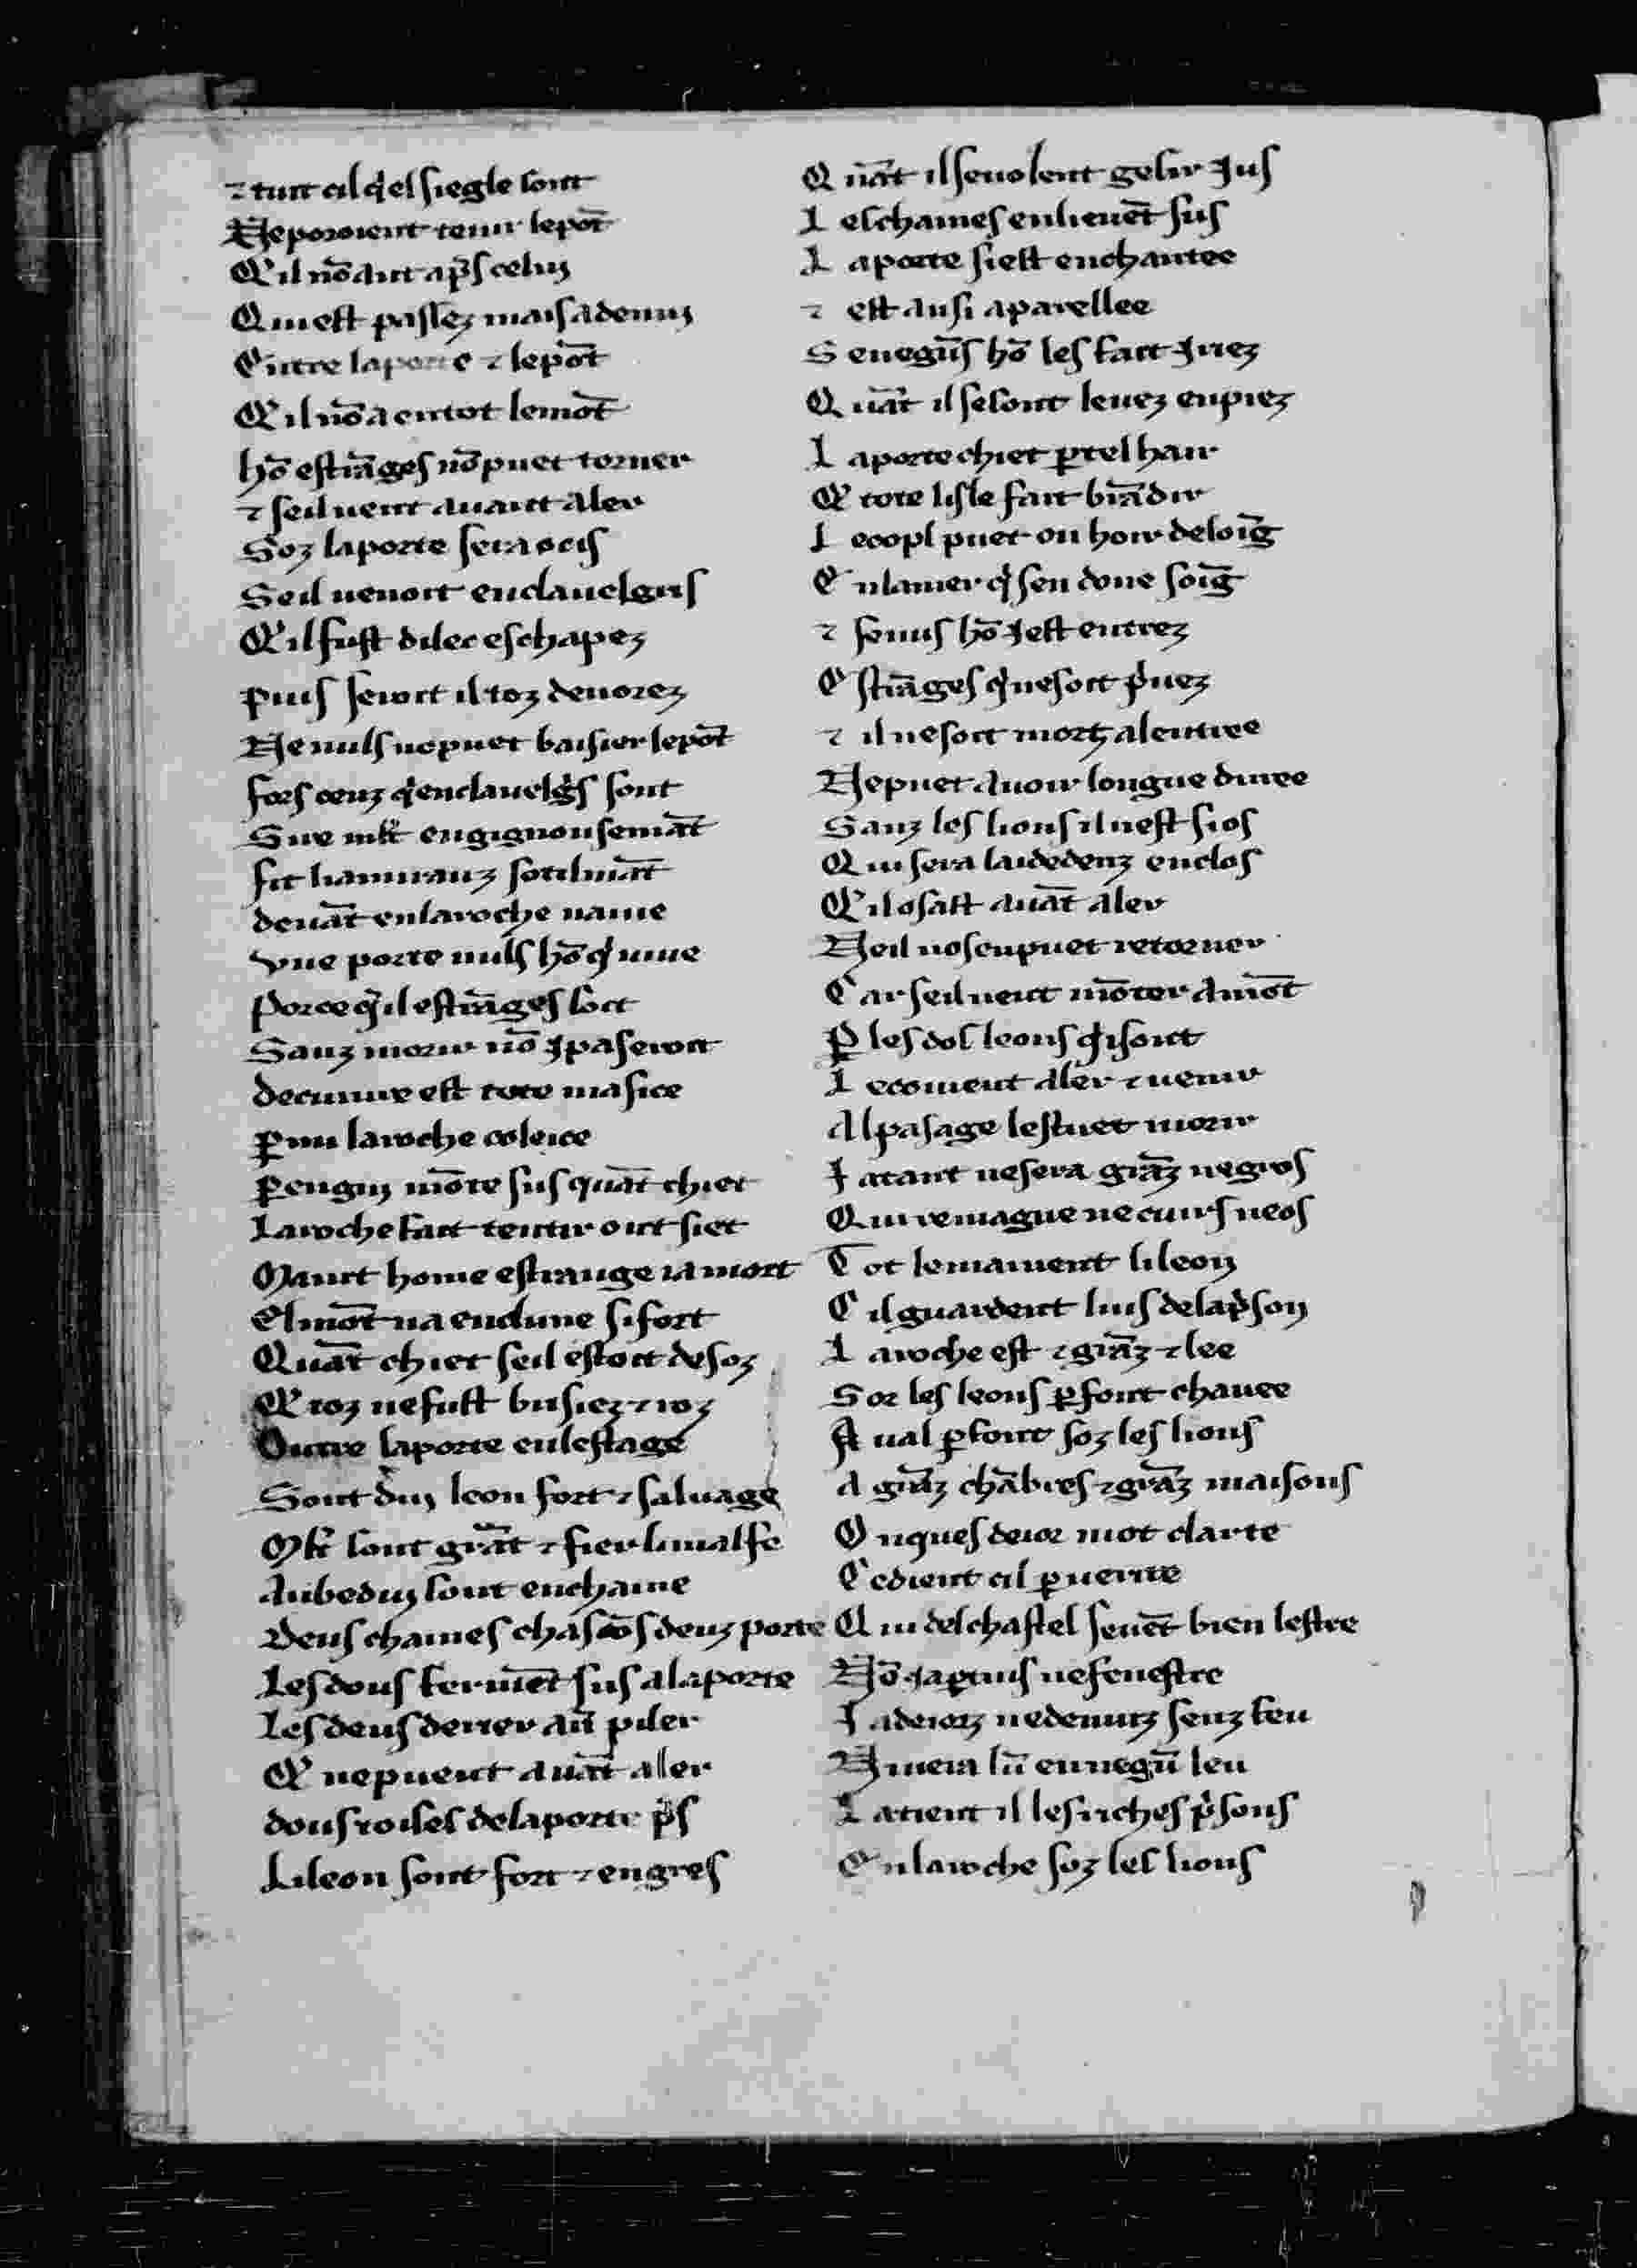 ⁊ tuit cil q̇ el siegle sont
Ne poroient tenir le pōt
Q' il nō ait ap̄s celuy
Qui est passez mais a denuy
Entre la porte ⁊ le pōt
Q' il nō a en tot le mōt
hō estrāges nō puet torner
⁊ se il uent auant aler
Soz la porte sera ocis
Se il uenoit enclauelgris
Q' il fust dilec eschapez
puis seroit il toz deuorez
Ne nuls ne puet baisier le pōt
fors ceuz q̇ enclauelgris sont
Sire mlt engignousemāt
fit hanuranz sotilmāt
deuāt en la roche naiue
vne porte nuls hō q̇ uiue
por ce q̇ il estrāges soit
Sanz morir nō ꝯ paseroit
de cuiure est tote masice
p̱mi la roche coleice
p̱ engin mōte sus quāt chiet
La roche fait tentir ou siet
Maint home estrange ia mort
El mōt na enclume si fort
Quāt chiet se il estoit desoz
Q' toz ne fust brisiez ⁊ roz
Outre la porte en lestage
Sont dui leon fort ⁊ saluage
Mlt sont grāt ⁊ fier li malfe
Anbedui sont enchaine
Deus chaines chascōs deuz porte
Les dous fermēt sus a la porte
Les deus derrer a ū piler
Q' ne puent auāt aler
dous toises de la porte p̄s
Li leon sont fort ⁊ engres
Quāt il se uolent gesir jus
Les chaines en lieuēt sus
La porte si est enchantee
⁊ est ausi aparellee
Se negūs hō les fait irez
Quāt il se sont leuez en piez
La porte chiet p̱ tel hair
Q' tote lisle fait brādir
Le copl puet on hoir de loīg
En la mer q̇ sen done soīg
⁊ se nus hō i est entrez
Estrāges q̇ ne soit ṗuez
⁊ il ne soit morz a lentree
Ne puet auoir longue duree
Sanz les lions il nest si os
Qui sera laidedenz enclos
Q' il osast auāt aler
Ne il nosenpuet retorner
Car se il uent mōter amōt
P̱ les dos leons q̇ i sont
Le couient aler ⁊ uenir
Al pasage lestuet morir
Ja tant ne sera grāz ne gros
Qui remagne ne cuirs ne os
Tot le maniuent li leon
Cil guardent luis de la ṗson
La roche est ⁊ grāz ⁊ lee
Sor les leons p̱font chauee
Aual p̱font soz les lions
A grāz chābres ⁊ grāz maisons
Onques de ior niot clarte
Ce dient cil p̱ uerite
Qui del chastel seuēt bien lestre
Nō ia p̱tuis ne fenestre
Ja de iorz ne de nuitz senz feu
Ni uera lū en negū leu
La tient il les riches ṗsons
En la roche soz les lions